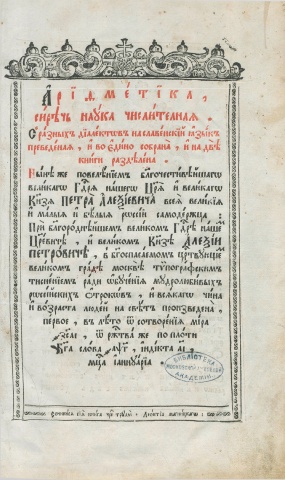 Арїѳметїка,
сирѣчь наука числителная.
С разныхъ дїалектовъ на славенскїй ѧзыкъ
преведеная, и во едино собрана, и на двѣ
книги раздѣлена.
Нынѣ же повелѣнїемъ благочестивѣйшагѡ
великагѡ Гдⷭ҇рѧ нашегѡ Цр҃ѧ и великагѡ
Кнѕ҃ѧ ПЕТРА Алеѯїевича всеѧ великїѧ
и малыѧ и бѣлыѧ рѡсїи самодержца:
При благороднѣйшемъ великомъ Гдⷭ҇рѣ нашемъ
Цр҃евичѣ, и великомъ Кнѕ҃ѣ Алеѯїи
Петровичѣ, в богоспасаемомъ царствующемъ
великомъ градѣ москвѣ тѵпографскимъ
тисненїемъ ради ѡбученїѧ мудролюбивыхъ
рѡсїйскихъ ѻтрокѡвъ, и всѧкагѡ чина
и возраста людей на свѣтъ произведена,
первое, в лѣто ѿ сотворенїѧ мїра
҂зсаі, ѿ ржⷭ҇тва же по плоти
Бг҃а слова ҂аѱг, індїкта аі,
мцⷭ҇а ианнуарїа
БИБЛИОТЕКА
АКАДЕМІИ
сочинисѧ сїѧ книга чрез труды